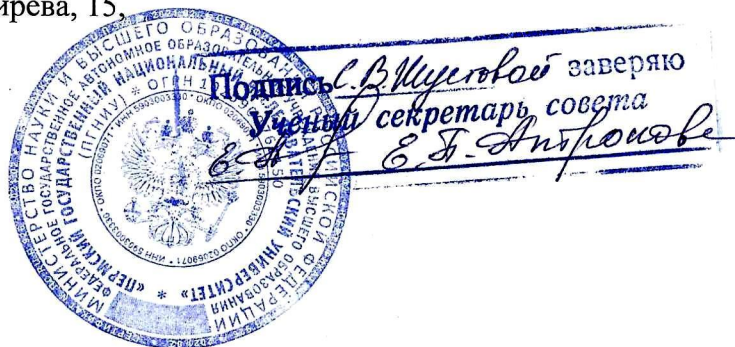 ирева, 15,
Подпись С.В. Шустовой заверяю
Ученый секретарь совета
Е.П. Антропова
МИНИСТЕРСТВО НАУКИ И ВЫСШЕГО ОБРАЗОВАНИЯ РОССИЙСКОЙ ФЕДЕРАЦИИ
ФЕДЕРАЛЬНОЕ ГОСУДАРСТВЕННОЕ АВТОНОМНОЕ ОБРАЗОВАТЕЛЬНОЕ УЧРЕЖДЕНИЕ ВЫСШЕГО ОБРАЗОВАНИЯ
«ПЕРМСКИЙ ГОСУДАРСТВЕННЫЙ НАЦИОНАЛЬНЫЙ ИССЛЕДОВАТЕЛЬСКИЙ УНИВЕРСИТЕТ» *
(ПГНИУ) * ОГРН 1
* ИНН 5903003330 * ОКПО 02069071